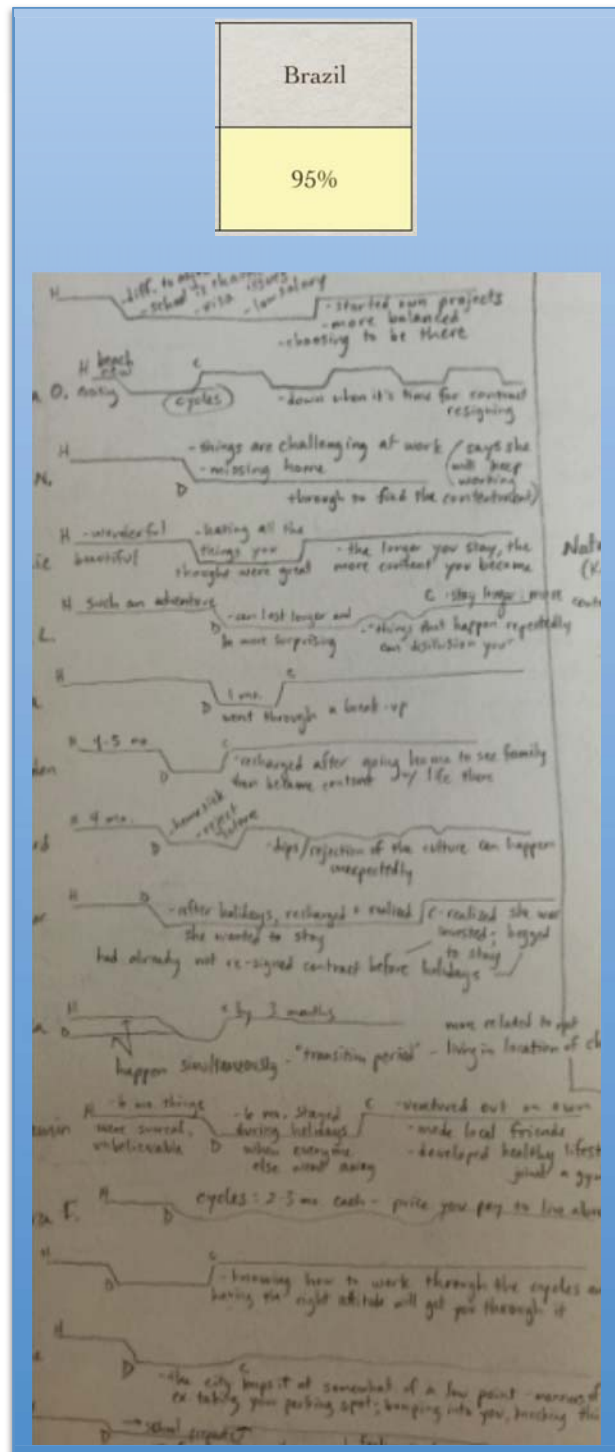 Brazil
95%
H
- school
- visa issues
- low salary
- started own projects
- more balanced
- choosing to be there
H beach
C
O.
cycles
- down when it's time for contract
resigning
H
- things are challenging at work
- missing home
says she
will keep
working
N.
D
through to find the contentment)
H - wonderful
beautiful
- hating all the
things you
thought were great
- the longer you stay, the
more content you become
H such an adventure
D
- can last longer and
be more surprising
C - stay longer, more
- "things that happen repeatedly
can disillusion you"
L.
H
D
1 mo.
C
went through a break-up
H 4-5 mo
D
C
- recharged after going home to see family
then became content w/ life there
H 4 mo.
D
- homesick
- reject
culture
- dips/rejection of the culture can happen
unexpectedly
H
D
- after holidays, recharged + realized
she wanted to stay
C - realized she was
invested; begged
to stay
had already not re-signed contract before holidays
H
D
C by 3 months
happen simultaneously - "transition period"
more related to not
- living in location of
H - 6 mo things
were surreal,
unbelievable
D
- 6 mo. stayed
during holidays
when everyone
else went away
C - ventured out on own
- made local friends
- developed healthy
H
D
cycles: 2-3 mo each - price you pay to live
H
D
C
- knowing how to work through the cycles
having the right attitude will get you through it
H
D
C
- the city keeps it at somewhat of a low point -
ex. taking your parking spot; bumping into you,
D